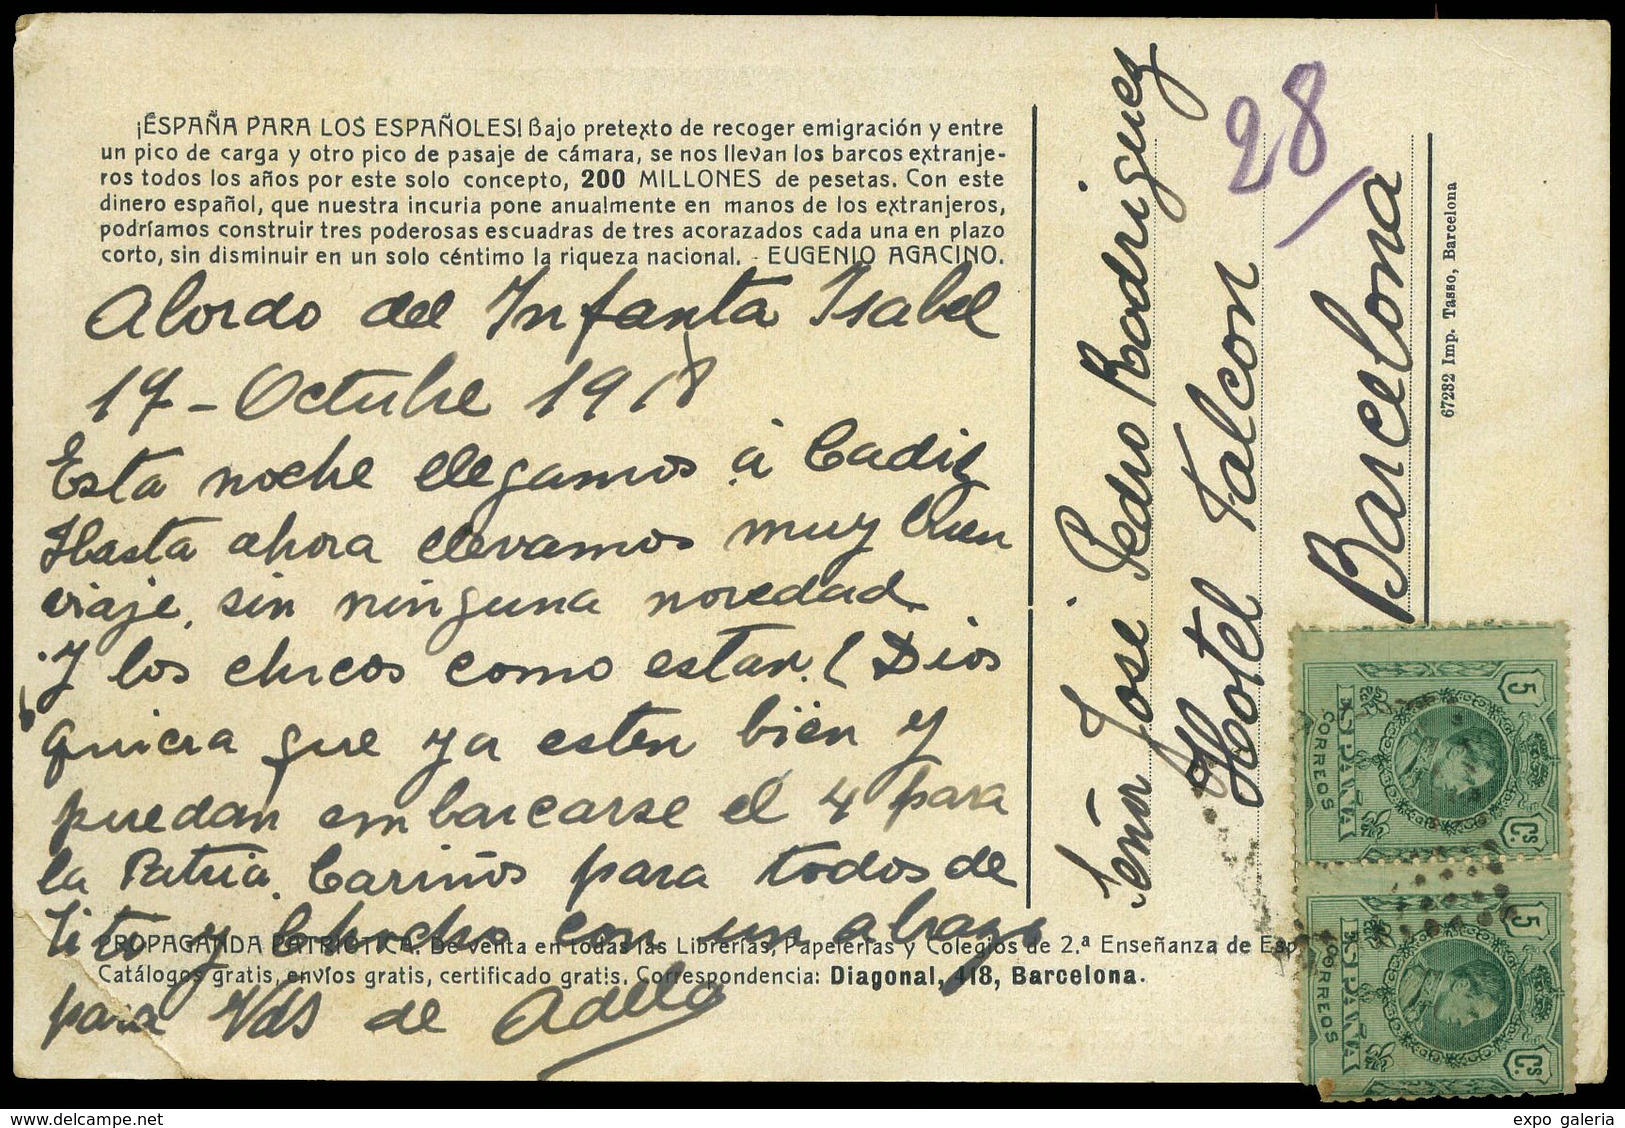 ¡ESPAÑA PARA LOS ESPAÑOLES! Bajo pretexto de recoger emigración y entre
un pico de carga y otro pico de pasaje de cámara, se nos llevan los barcos extranje-
ros todos los años por este solo concepto, 200 MILLONES de pesetas. Con este
dinero español, que nuestra incuria pone anualmente en manos de los extranjeros,
podríamos construir tres poderosas escuadras de tres acorazados cada una en plazo
corto, sin disminuir en un solo céntimo la riqueza nacional. - EUGENIO AGACINO.
Abordo del Infanta Isabel
17 - Octubre 1918
Esta noche llegamos á Cadiz
Hasta ahora llevamos muy buen
viaje, sin ninguna novedad.
Y los chicos como estan. (Dios
quiera que ya esten bien y
puedan embarcarse el 4 para
la Patria. Cariños para todos de
Tito y Chucho con un abrazo
para Vds de Adela
PROPAGANDA PATRIÓTICA. De venta en todas las Librerías, Papelerías y Colegios de 2.ª Enseñanza de Esp
Catálogos gratis, envíos gratis, certificado gratis. Correspondencia: Diagonal, 418, Barcelona.
Señor José Pedro Rodriguez
Hotel Falcon
28
Barcelona
67232 Imp. Tasso, Barcelona
5 ESPAÑA Cs
CORREOS
5 ESPAÑA Cs
CORREOS
www.delcampe.net
expo galeria